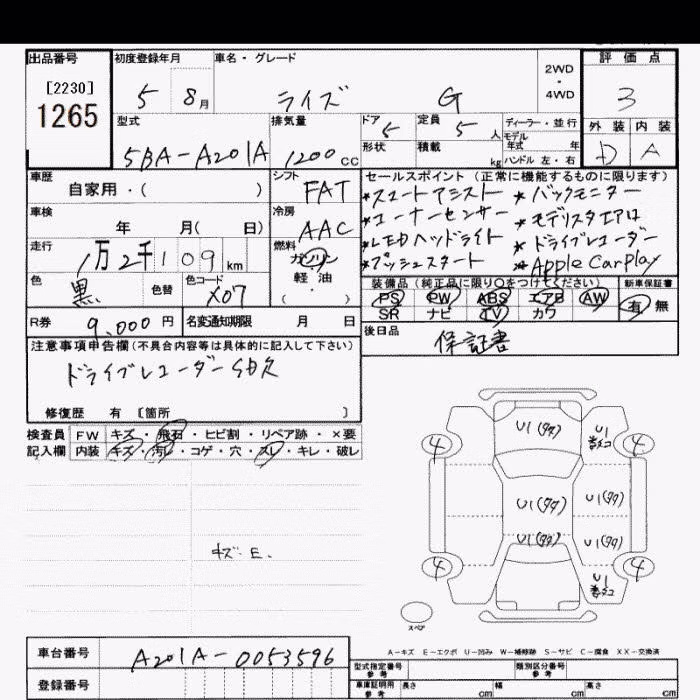 出品番号 初度登録年月 車名・グレード 評価点
[2230] 5 8月 ライズ G 2WD・4WD 3
1265 型式 排気量 ドア 定員 ディーラー・並行 外装 内装
5BA-A201A 1200cc 5 5人 モデル年式 年 D A
形状 積載 kg ハンドル 左・右
車歴 シフト セールスポイント (正常に機能するものに限ります)
自家用・( ) FAT *スマートアシスト *バックモニター
車検 冷房 *コーナーセンサー *モデリスタエアロ
年 月( 日) AAC *LEDヘッドライト *ドライブレコーダー
走行 燃料 *プッシュスタート *Apple CarPlay
1万2千109km ガソリン
色 色替 色コード 軽油 装備品 (純正品に限り○をつけてください) 新車保証書
黒 X07 ・( ) PS PW ABS エアB AW 有 無
SR ナビ TV カワ
R券 9,000円 名変通知期限 月 日 後日品
注意事項申告欄(不具合内容等は具体的に記入して下さい) 保証書
ドライブレコーダーSD欠
修復歴 有 [箇所 ]
検査員 FW キズ・飛石・ヒビ割・リペア跡・×要
記入欄 内装 キズ・汚レ・コゲ・穴・スレ・キレ・破レ
キズ E.
U1
4 4
U1
4 4
U1
スペア
A-キズ E-エクボ U-凹み W-補修跡 S-サビ C-腐食 XX-交換済
車台番号 A201A-0053596
登録番号
型式指定番号 参考 類別区分番号 参考
車庫証明用 参考 長さ cm 幅 cm 高さ cm